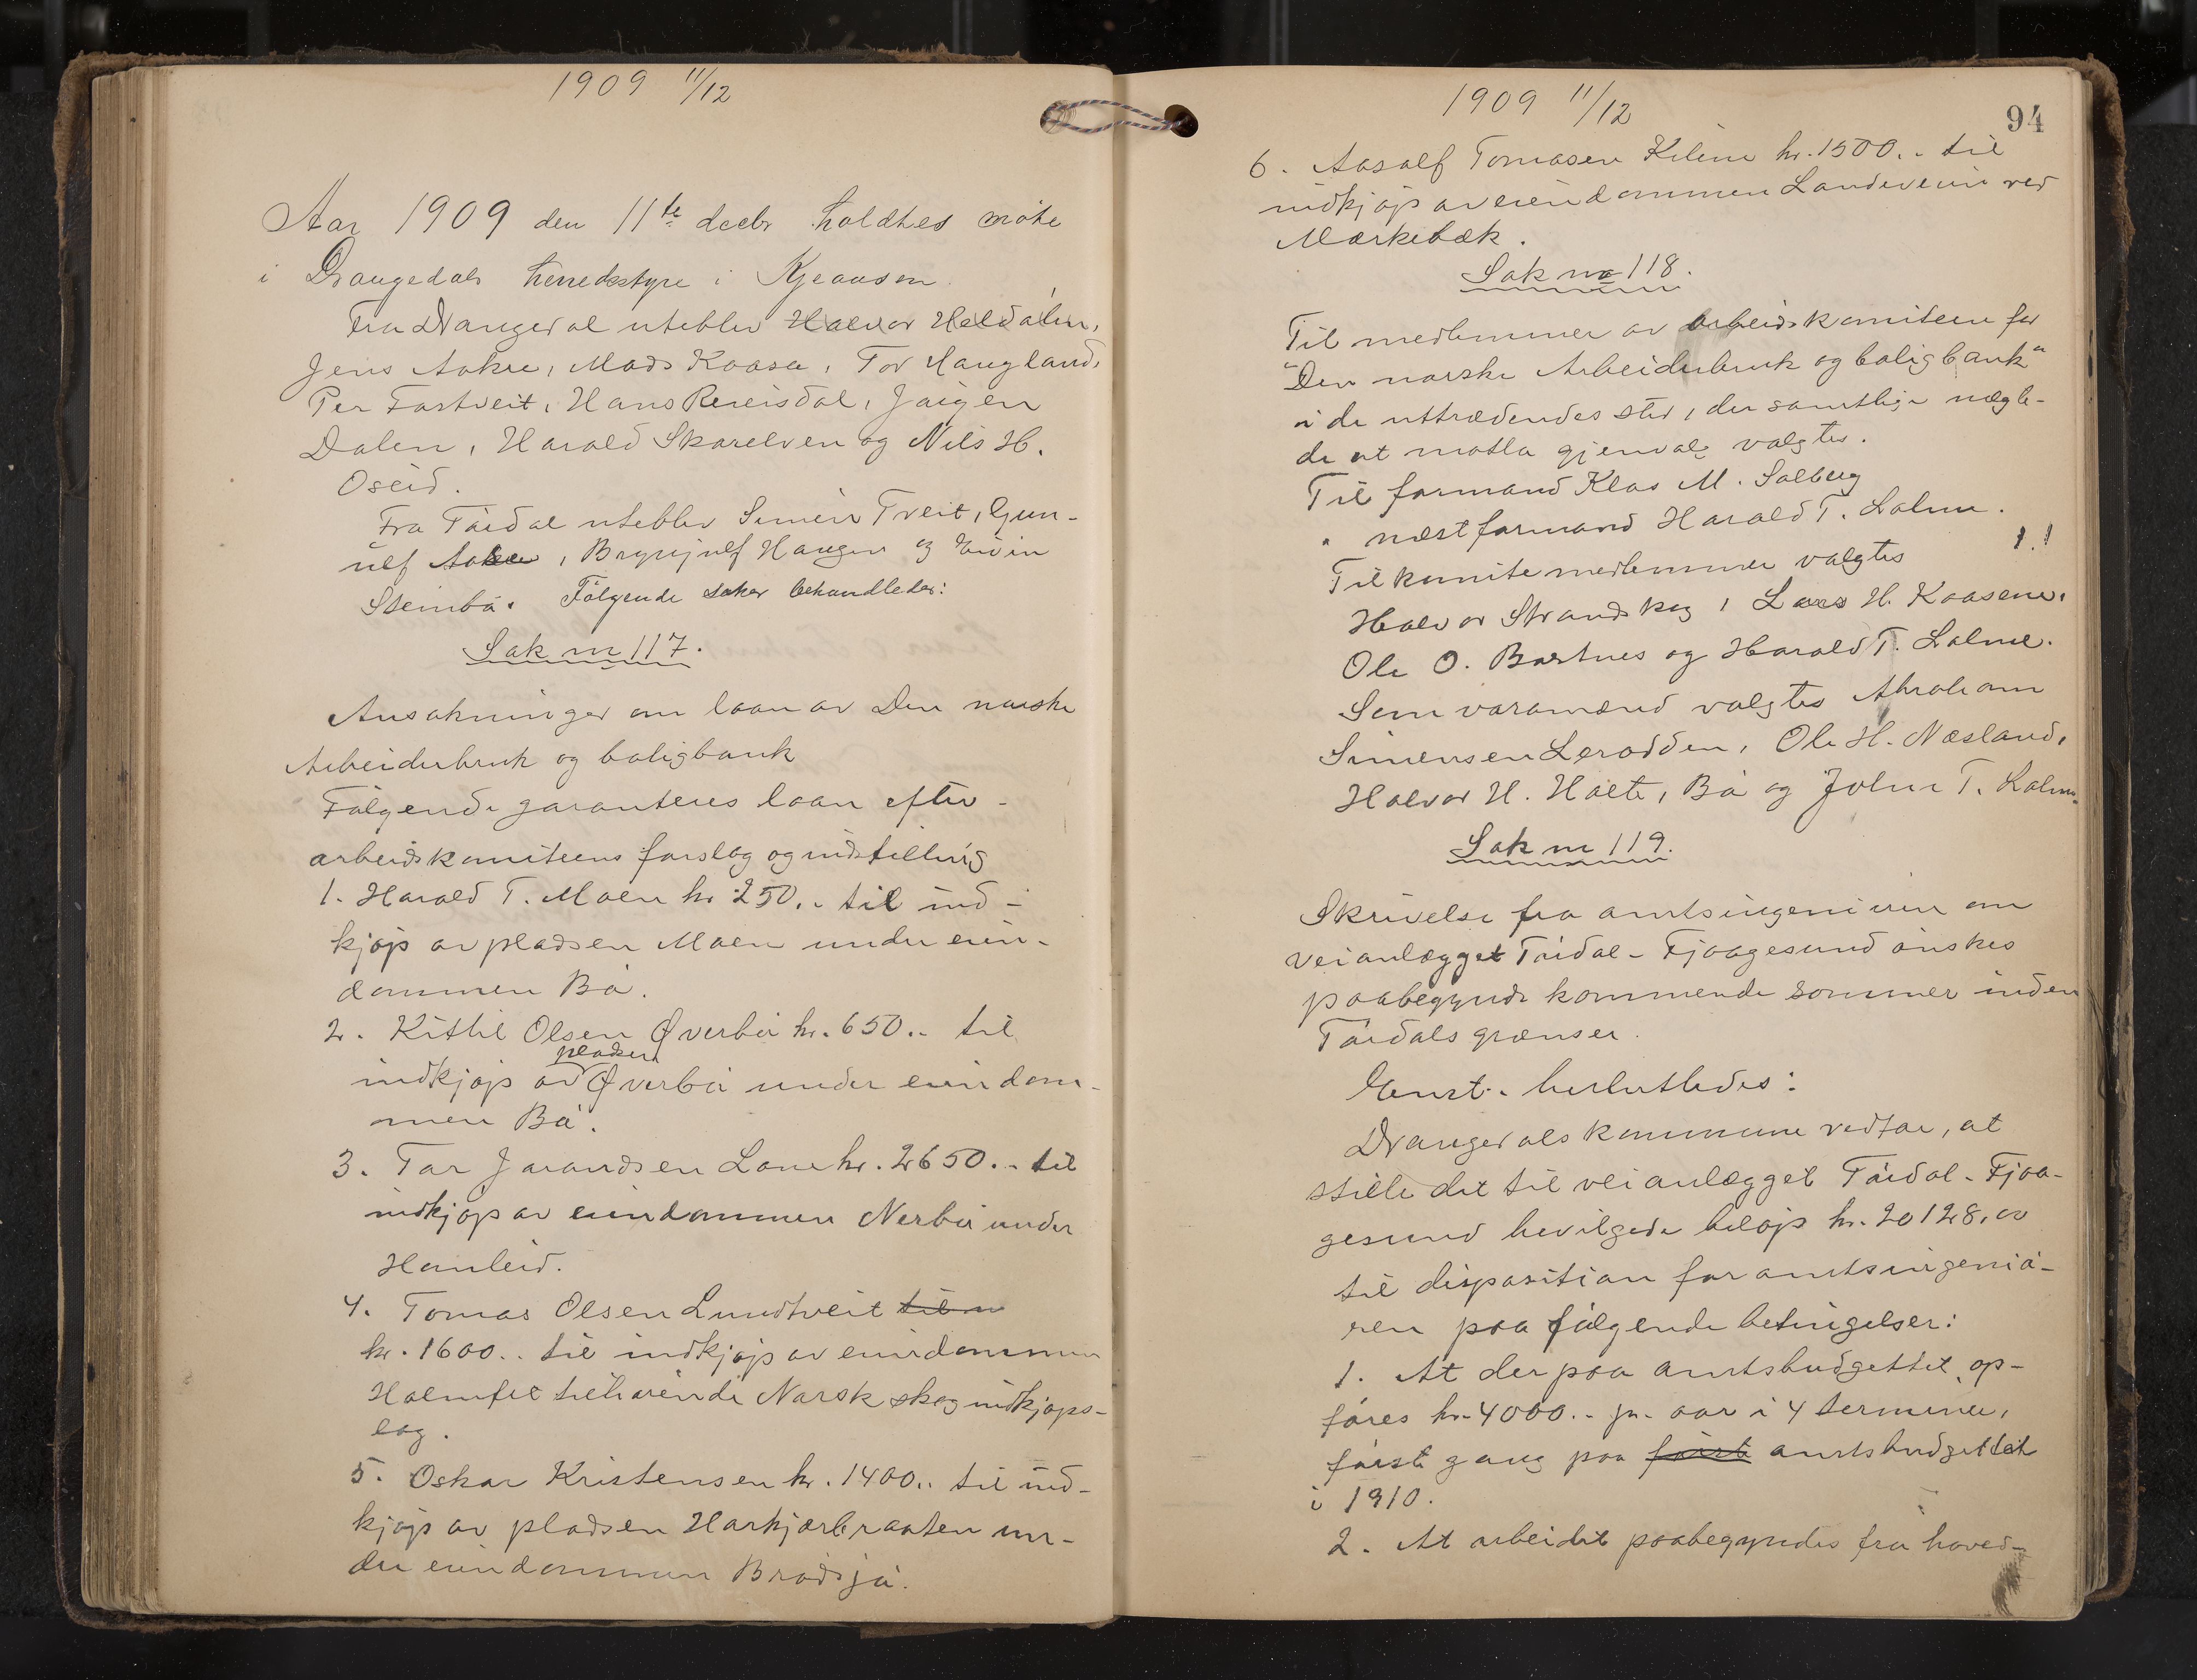 1909 11/12
Aar 1909 den 11te decbr holdtes møte
i Drangedals herredsstyre i Kjeaasen.
Fra Drangedal uteblev Halvor Heldalen,
Jens Aakre, Mads Kaasa, Tor Haugland,
Per Fostveit, Hans Reiersdal, Jørgen
Dalen, Harald Skarelven og Nils H.
Oseid.
Fra Tørdal uteblev Simen Tveit, Gun-
ulf, Brynjulf Haugen og Eivin
Steinbø. Følgende saker behandledes:
Sak nr 117.
Ansøkninger om laan av Den norske
Arbeiderbruk og boligbank
Følgende garanteres laan efter
arbeidskomiteens forslag og indstilling
1. Harald T. Moen kr 250.- til ind-
kjøp av pladsen Moen under eien-
dommen Bø.
2. Kittil Olsen Øverbø kr. 650.- til
indkjøp av pladsen Øverbø under eiendom-
men Bø.
3. Tor Jarandsen Lone kr. 2650.- til
indkjøp av eiendommen Nerbø under
Homleid.
4. Tomas Olsen Lundtveit til n
kr. 1600.- til indkjøp av eiendommen
Holmfet tilhørende Norsk skogindkjøps-
lag.
5. Oskar Kristensen kr. 1400.- til ind-
kjøp av pladsen Harkjærbraaten un-
der eiendommen Brødsjø.
1909 11/12
94
6. Aasolf Tomasen Kilene kr. 1500.- til
indkjøp av eiendommen Landeveien ved
Mærkebæk.
Sak nr 118.
Til medlemmer av arbeidskomiteen for
"Den norske Arbeiderbruk og boligbank"
i de uttrædendes sted, der samtlige negte-
de at motta gjenvalg valgtes.
Til formand Klas M. Solberg
" næstformand Harald T. Lalme.
Til komitemedlemmer valgtes
Halvor Strandskog, Lars H. Kaasene,
Ole O. Bostnes og Harald T. Lalme.
Som varamænd valgtes Abraham
Simensen Lerodden, Ole H. Næsland,
Halvor H. Holte, Bø og John T. Lalme.
Sak nr 119.
Skrivelse fra amtsingeniøren om
veianlægget Tørdal - Fjaagesund ønskes
paabegyndt kommende sommer inden
Tørdals grænser.
Enst. beslutledes:
Drangedals kommune vedtar, at
stille det til veianlægget Tørdal - Fjaa-
gesund bevilgede beløp kr. 20128,00
til disposition for amtsingeniø-
ren paa følgende betingelser:
1. At der paa amtsbudgettet op-
føres kr. 4000.- pr. aar i 4 terminer,
første gang paa først amtsbudgettet
i 1910.
2. At arbeidet paabegyndes fra hoved-